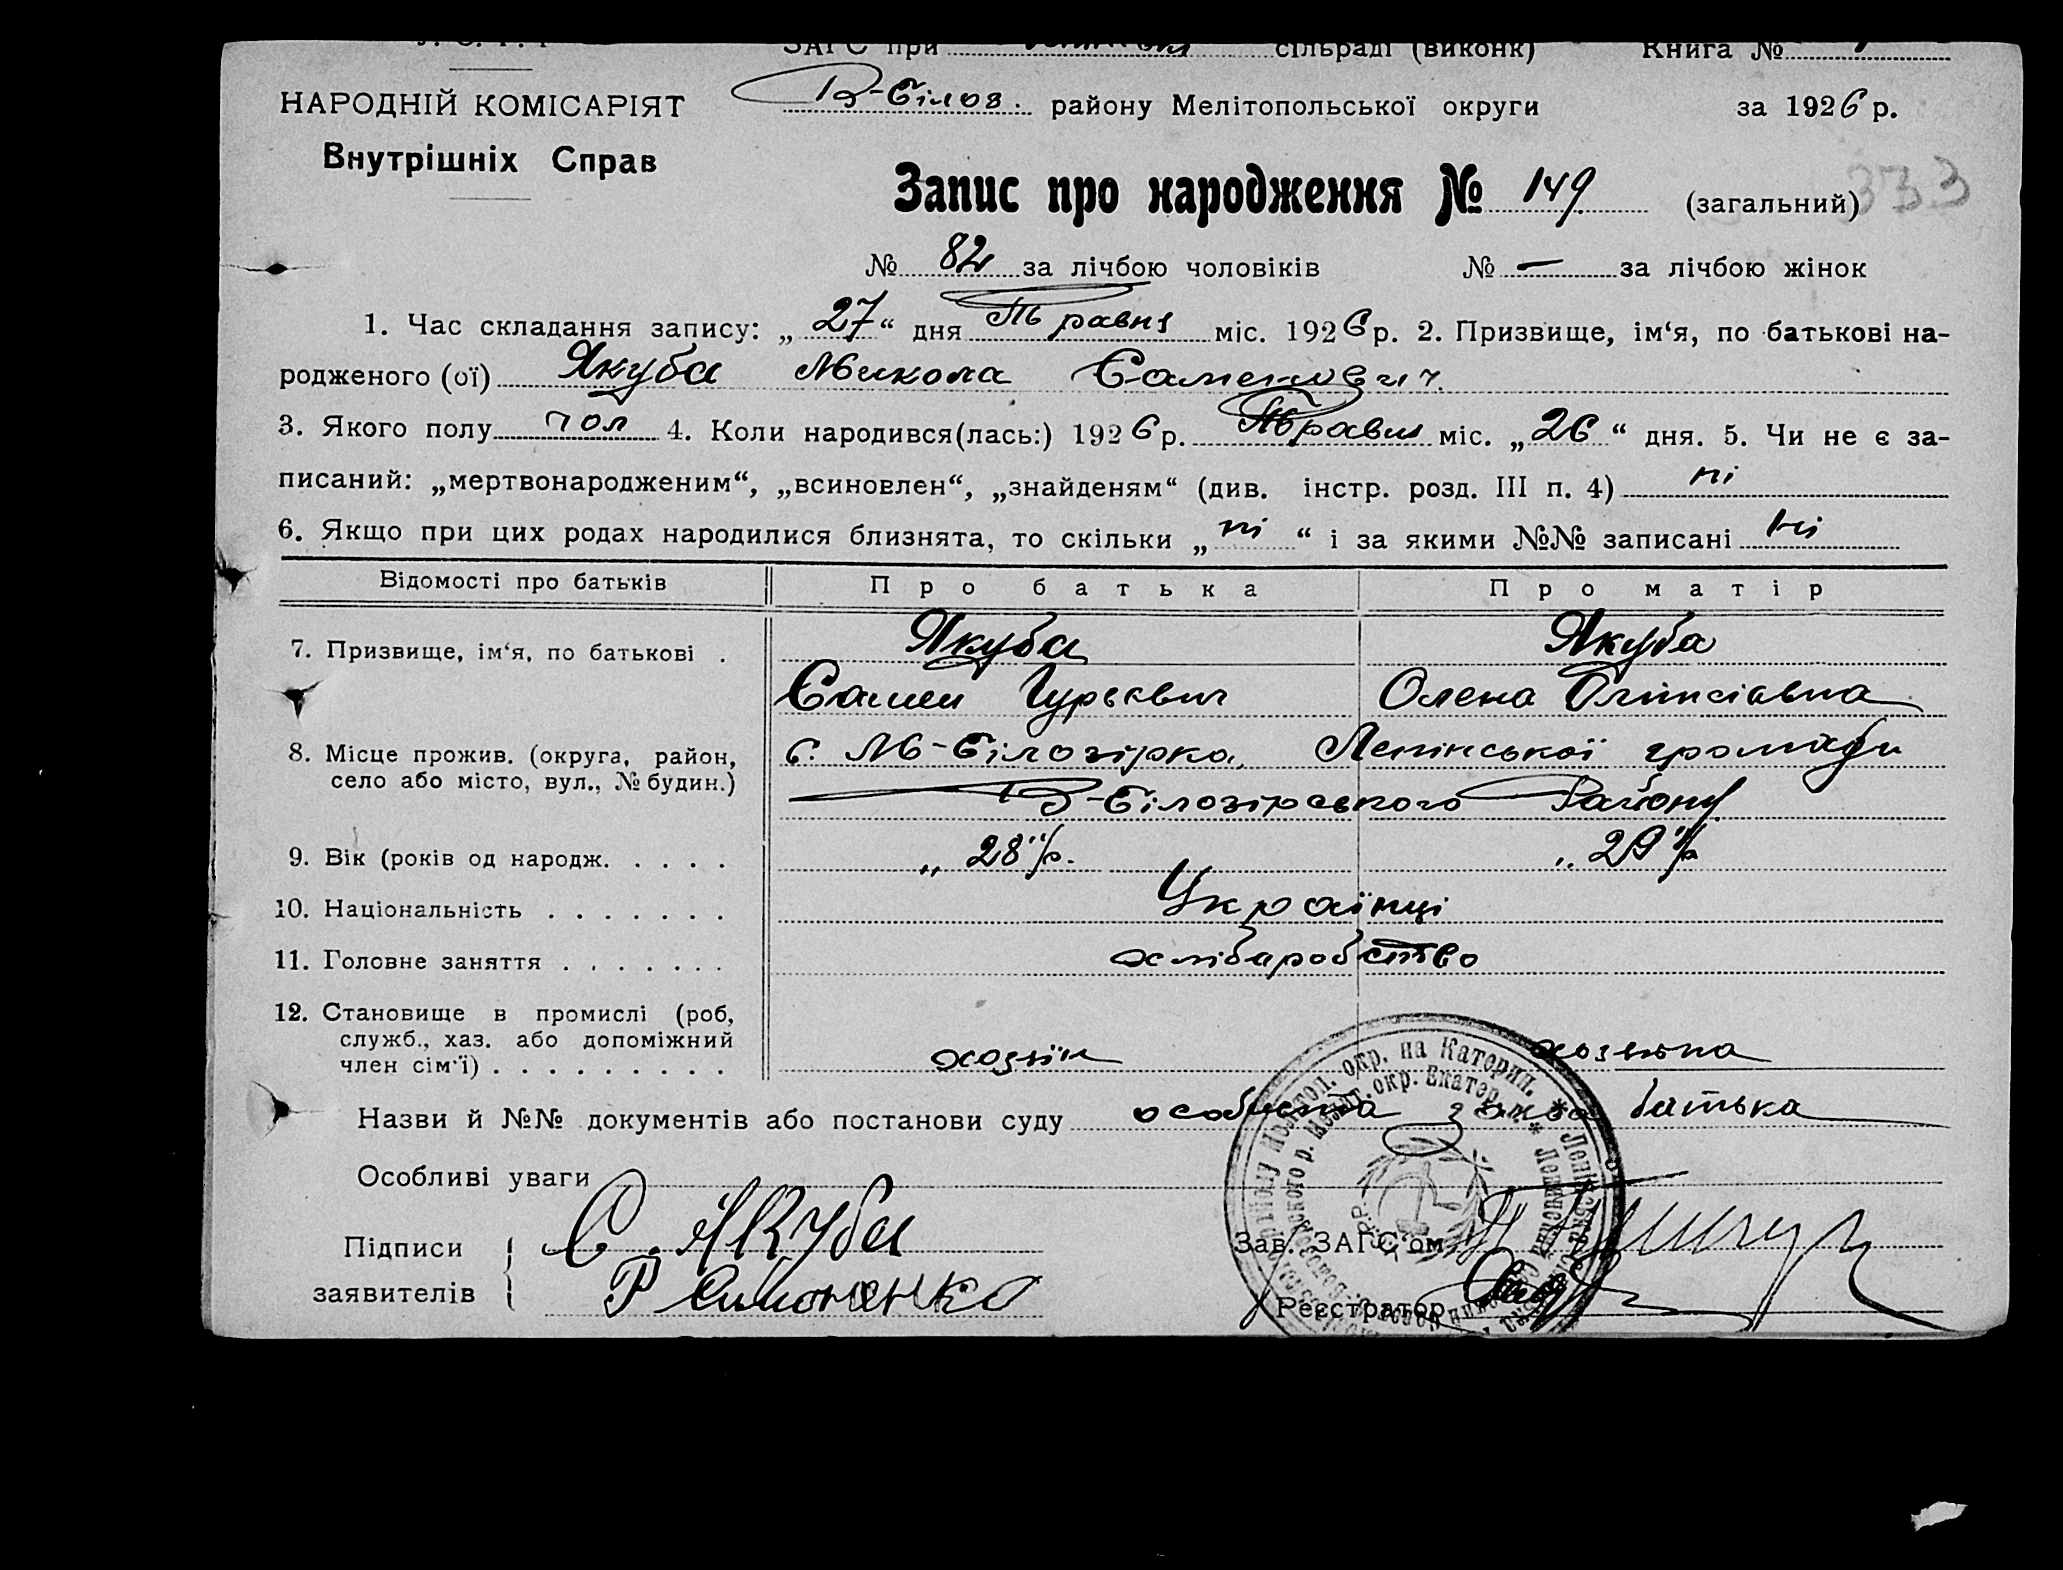 ЗАГС при сільраді (виконк) Книга №
НАРОДНІЙ КОМІСАРІЯТ В-Білоз. району Мелітопольської округи за 1926 р.
Внутрішніх Справ
Запис про народження № 149 (загальний) 333
№ 82 за лічбою чоловіків № — за лічбою жінок
1. Час складання запису: „27“ дня Травня міс. 1926 р. 2. Призвище, ім‘я, по батькові на-
родженого (ої) Якуба Микола Саменович.
3. Якого полу чол 4. Коли народився(лась:) 1926 р. Травня міс. „26“ дня. 5. Чи не є за-
писаний: „мертвонародженим“, „всиновлен“, „знайденям“ (див. інстр. розд. III п. 4) ні
6. Якщо при цих родах народилися близнята, то скільки „ні“ і за якими №№ записані ні
Відомості про батьків Про батька Про матір
7. Призвище, ім‘я, по батькові . Якуба Якуба
Самен Гурьевич Олена
8. Місце прожив. (округа, район, с. М-Білозірка, Ленінської громади
село або місто, вул., № будин.) В-Білозірського Району
9. Вік (років од народж. . . . . „28“ р. „29“ р
10. Національність . . . . . . . Українці
11. Головне заняття . . . . . . . хлібаробство
12. Становище в промислі (роб,
служб., хаз. або допоміжний
член сім‘ї) . . . . . . . . . хозяїн хозяйка
Назви й №№ документів або постанови суду особиста заява батька
Особливі уваги
Підписи С. Якуба Зав. ЗАГС‘ом
заявителів Р Симоненко Реєстратор